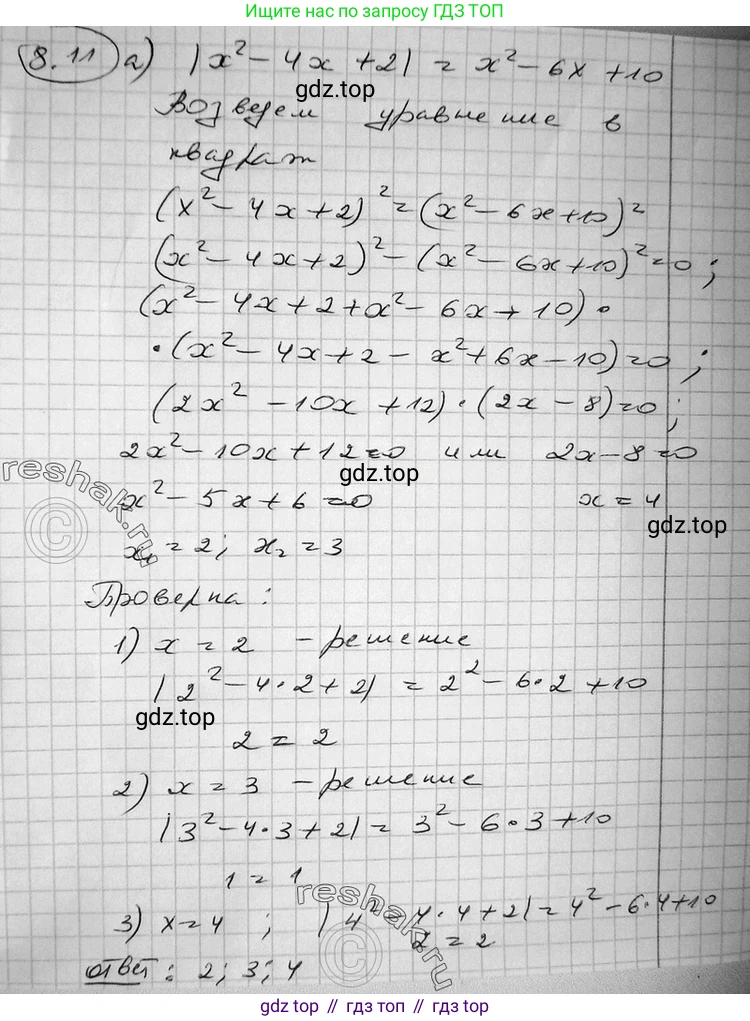 Ищите нас по запросу ГДЗ ТОП
8.11 а) |x² - 4x + 2| = x² - 6x + 10
gdz.top
Возведем уравнение в
квадрат
(x² - 4x + 2)² = (x² - 6x + 10)²
(x² - 4x + 2)² - (x² - 6x + 10)² = 0;
(x² - 4x + 2 + x² - 6x + 10) ·
· (x² - 4x + 2 - x² + 6x - 10) = 0;
(2x² - 10x + 12) · (2x - 8) = 0;
2x² - 10x + 12 = 0 или 2x - 8 = 0
gdz.top
reshak.ru
x² - 5x + 6 = 0 x = 4
gdz.top
x₁ = 2; x₂ = 3
Проверка:
1) x = 2 - решение
|2² - 4·2 + 2| = 2² - 6·2 + 10
gdz.top
2 = 2
2) x = 3 - решение
|3² - 4·3 + 2| = 3² - 6·3 + 10
1 = 1
reshak.ru
3) x = 4; |4² - 4·4 + 2| = 4² - 6·4 + 10
2 = 2
ответ: 2; 3; 4
gdz.top // гдз топ // gdz.top